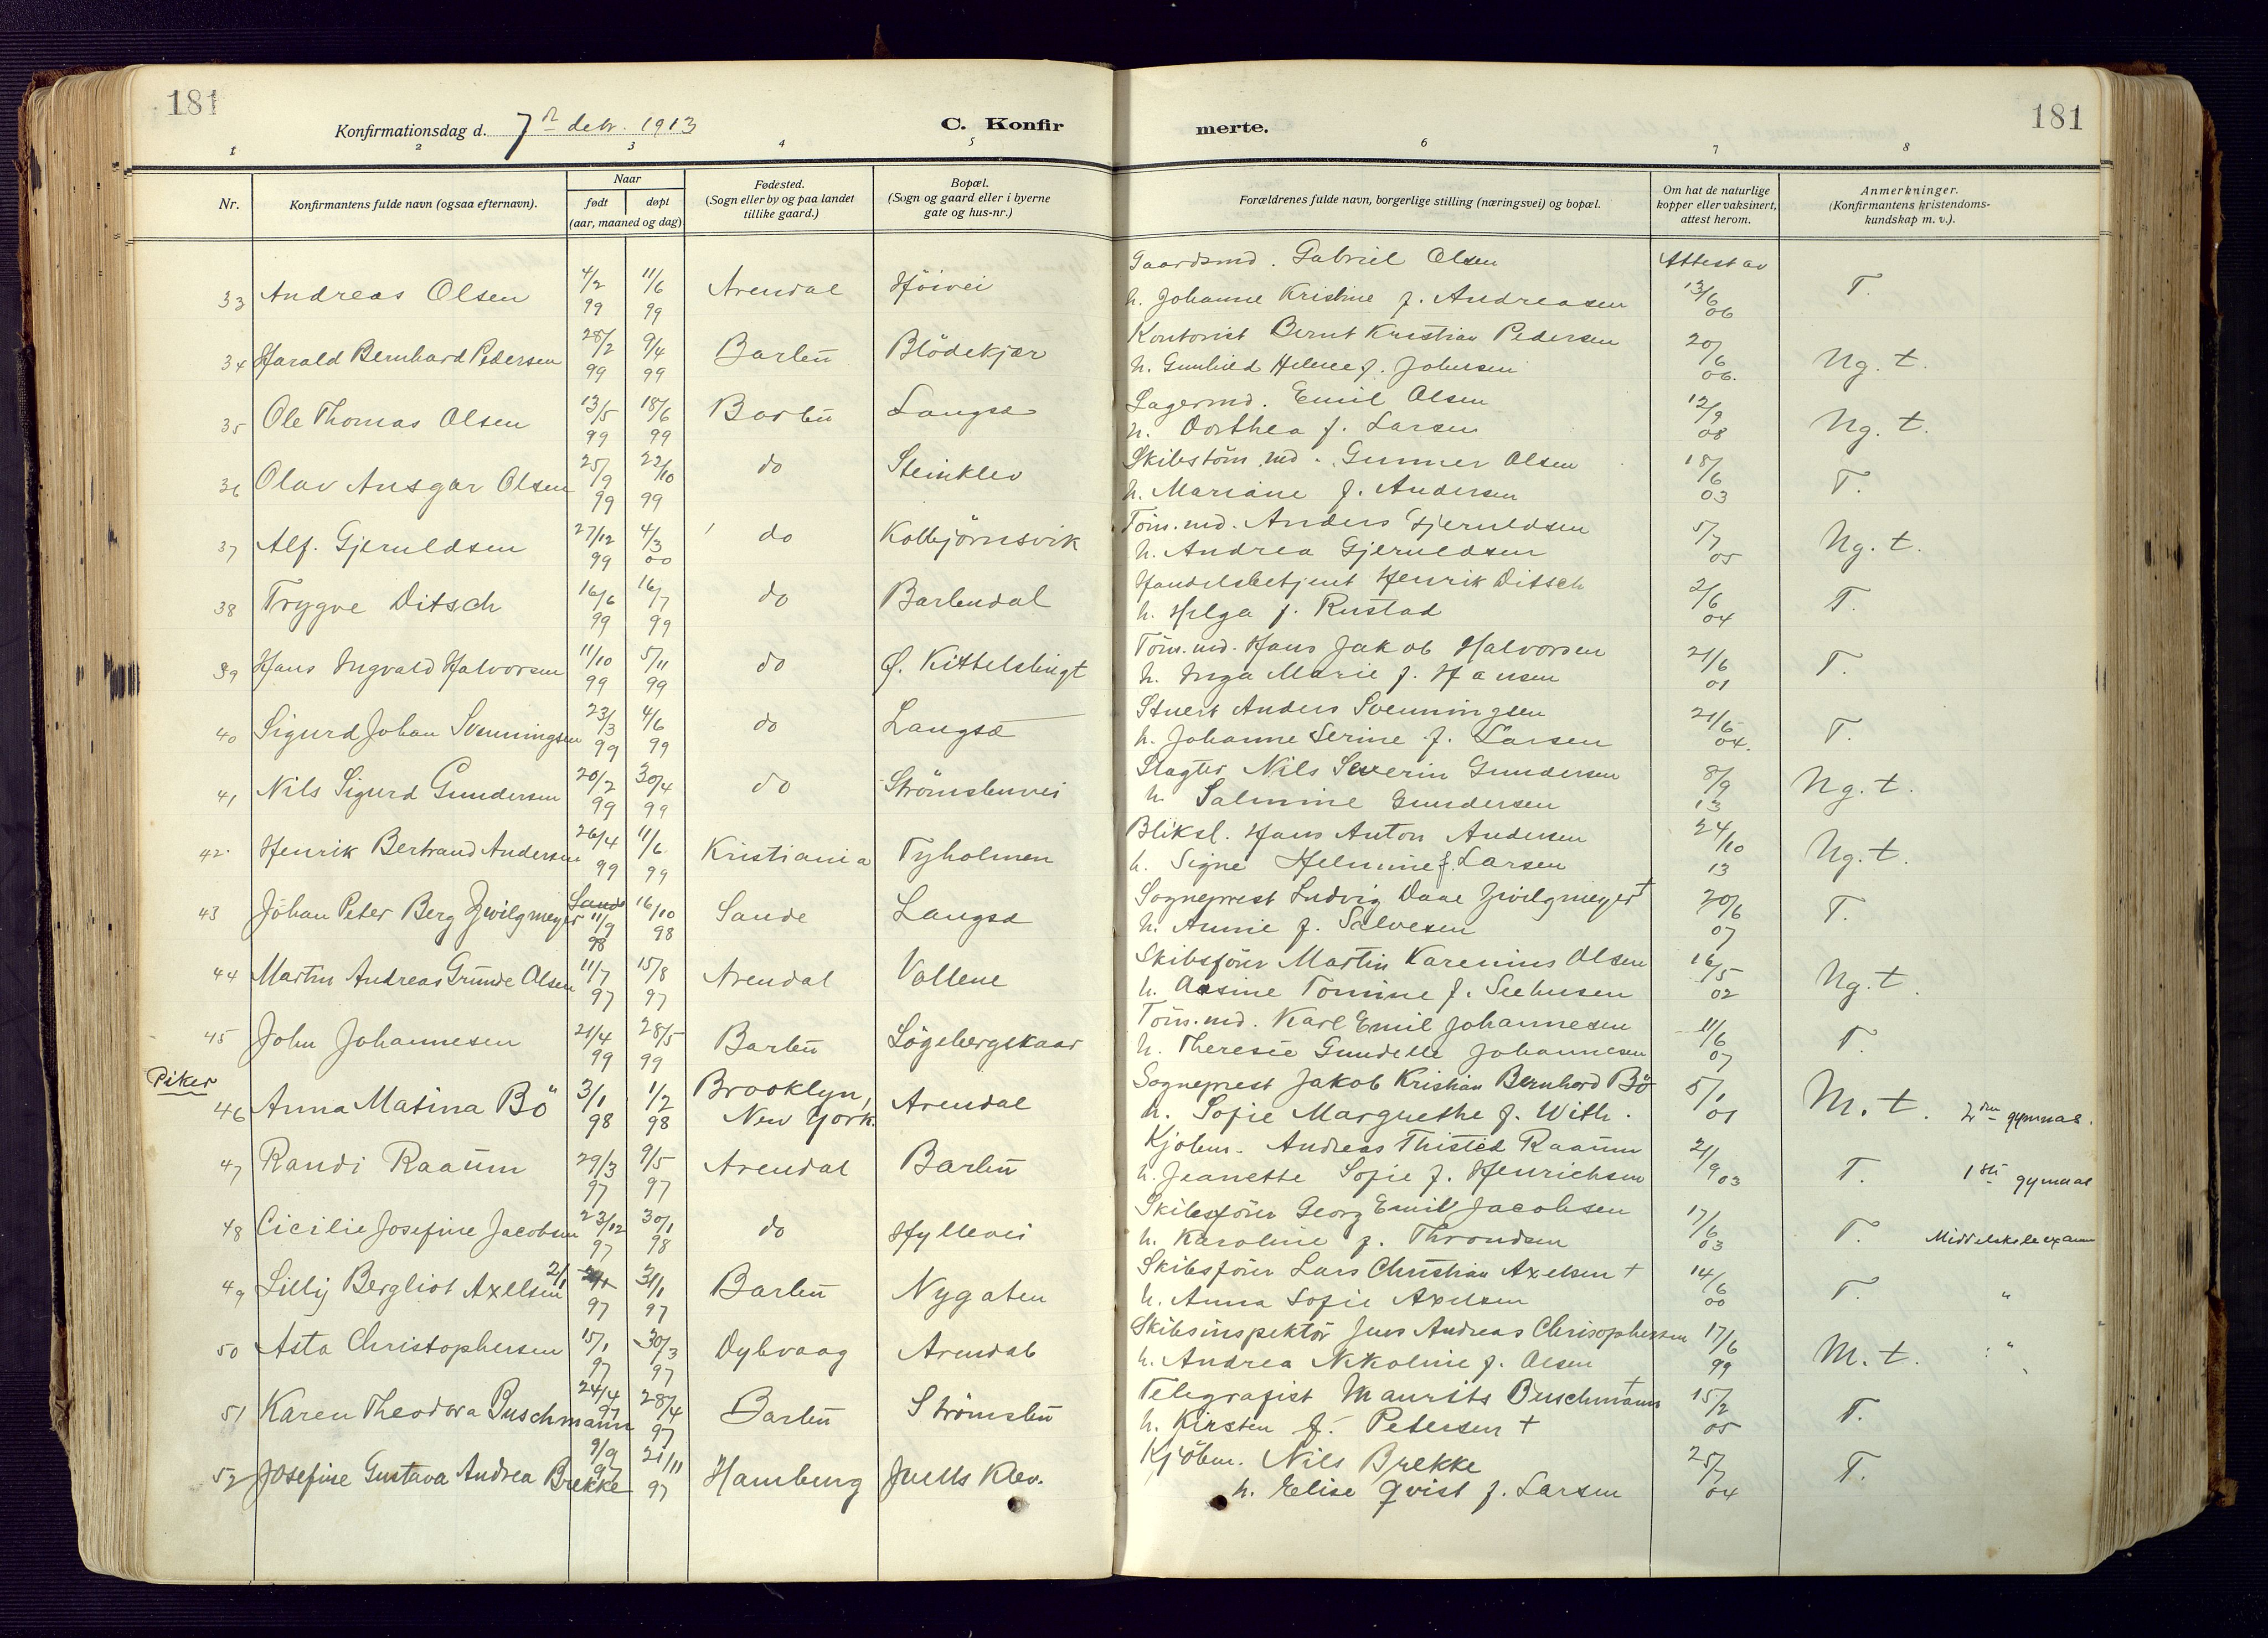 181
181
Konfirmationsdag d. 7 debr. 1913
C. Konfirmerte.
1 2 3 4 5 6 7 8
Nr.
Konfirmantens fulde navn (ogsaa efternavn).
Naar
født
døpt
(aar, maaned og dag)
Fødested.
(Sogn eller by og paa landet
tillike gaard.)
Bopæl.
(Sogn og gaard eller i byerne
gate og hus-nr.)
Forældrenes fulde navn, borgerlige stilling (næringsvei) og bopæl.
Om hat de naturlige
kopper eller vaksinert,
attest herom.
Anmerkninger.
(Konfirmantens kristendoms-
kundskap m. v.).
33 Andreas Olsen 4/2 99 11/6 99 Arendal Höivei Gaardsmd. Gabriel Olsen Attest av 13/6 06 T.
h. Johanne Kristine f. Andreasen
34 Harald Bernhard Pedersen 28/2 99 9/4 99 Barbu Blödekjær Kontorist Bernt Kristian Pedersen 20/6 06. Ng. t.
h. Gunhild Helene f. Johnsen
35 Ole Thomas Olsen 13/5 99 18/6 99 Barbu Langsæ Lagermd. Emil Olsen 12/9 08 Ng. t.
h. Dorthea f. Larsen
36 Olav Ansgar Olsen 25/9 99 22/10 99 do Steinklev Skibstöm.md. Gunner Olsen 18/6 03 T.
h. Mariane f. Andersen
37 Alf. Gjeruldsen 27/12 99 4/3 00 do Kolbjörnsvik Töm.md. Anders Gjeruldsen 5/7 05 Ng. t.
h. Andrea Gjeruldsen
38 Trygve Ditsch 16/6 99 16/7 99 do Barbudal Handelsbetjent Henrik Ditsch 2/6 04 T.
h. Helga f. Rustad
39 Hans Ingvald Halvorsen 11/10 99 5/11 99 do Ø. Kittelsbugt Töm.md. Hans Jakob Halvorsen 21/6 01 T.
h. Inga Marie f. Hansen
40 Sigurd Johan Svenningsen 23/3 99 4/6 99 do Langsæ Stuert Anders Svenningsen 21/6 04. T.
h. Johanne Serine f. Larsen
41 Nils Sigurd Gundersen 20/2 99 30/4 99 do Strömsbuvei Slagter Nils Severin Gundersen 8/9 13 Ng. t.
h. Salmine Gundersen
42 Henrik Bertrand Andersen 26/4 99 11/6 99 Kristiania Tyholmen Bliksl. Hans Anton Andersen 24/10 13 Ng. t.
h. Signe Helmine f. Larsen
43 Johan Peter Berg Zwilgmeyer Sande 11/9 98 16/10 98 Sande Langsæ Sogneprest Ludvig Daae Zwilgmeyer † 20/6 07 T.
h. Annie f. Salvesen
44 Martin Andreas Grunde Olsen 11/7 97 15/8 97 Arendal Vollene Skibsförer Martin Karenius Olsen 16/5 02 Ng. t.
h. Aasine Tomine f. Seehusen
45 John Johannesen 21/4 99 28/5 99 Barbu Lögebergskaar Töm.md. Karl Emil Johannesen 11/6 07 T.
h. Theresie Gundelle Johannesen
Piker
46 Anna Matina Bö 3/1 98 1/2 98 Brooklyn, New York. Arendal Sogneprest Jakob Kristian Bernhard Bö 5/1 01 M. t. 2den gymnas.
h. Sofie Margrethe f. With.
47 Randi Raaum 29/3 97 9/5 97 Arendal Barbu Kjöbm. Andreas Thisted Raaum 21/9 03 T. 1ste gymnas
h. Jeanette Sofie f. Henrichsen
48 Cicilie Josefine Jacobsen 23/12 97 30/1 98 do Hyllevei Skibsförer Georg Emil Jacobsen 17/6 03 T. Middelskoleexam
h. Karoline f. Throndsen
49 Lilly Bergliot Axelsen 2/1 97 31/1 97 Barbu Nygaten Skibsförer Lars Christian Axelsen † 14/6 00 T. "
h. Anna Sofie Axelsen
50 Asta Christophersen 15/1 97 30/3 97 Dybvaag Arendal Skibsinspektör Jens Andreas Chrisophersen 17/6 99 M. t. "
h. Andrea Nikoline f. Olsen
51 Karen Theodora Buschmann 24/4 97 28/4 97 Barbu Strömsbu Telegrafist Maurits Buschmann † 15/2 05 T.
h. Kirsten f. Petersen †
52 Josefine Gustava Andrea Brekke 9/9 97 21/11 97 Hamburg Juells Klev. Kjöbm. Nils Brekke 25/7 04 T.
h. Elise Qvist f. Larsen